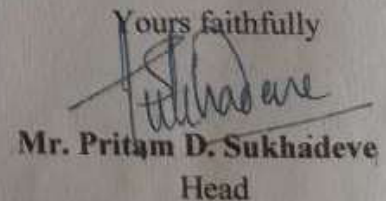 Yours faithfully
Sukhadeve
Mr. Pritam D. Sukhadeve
Head